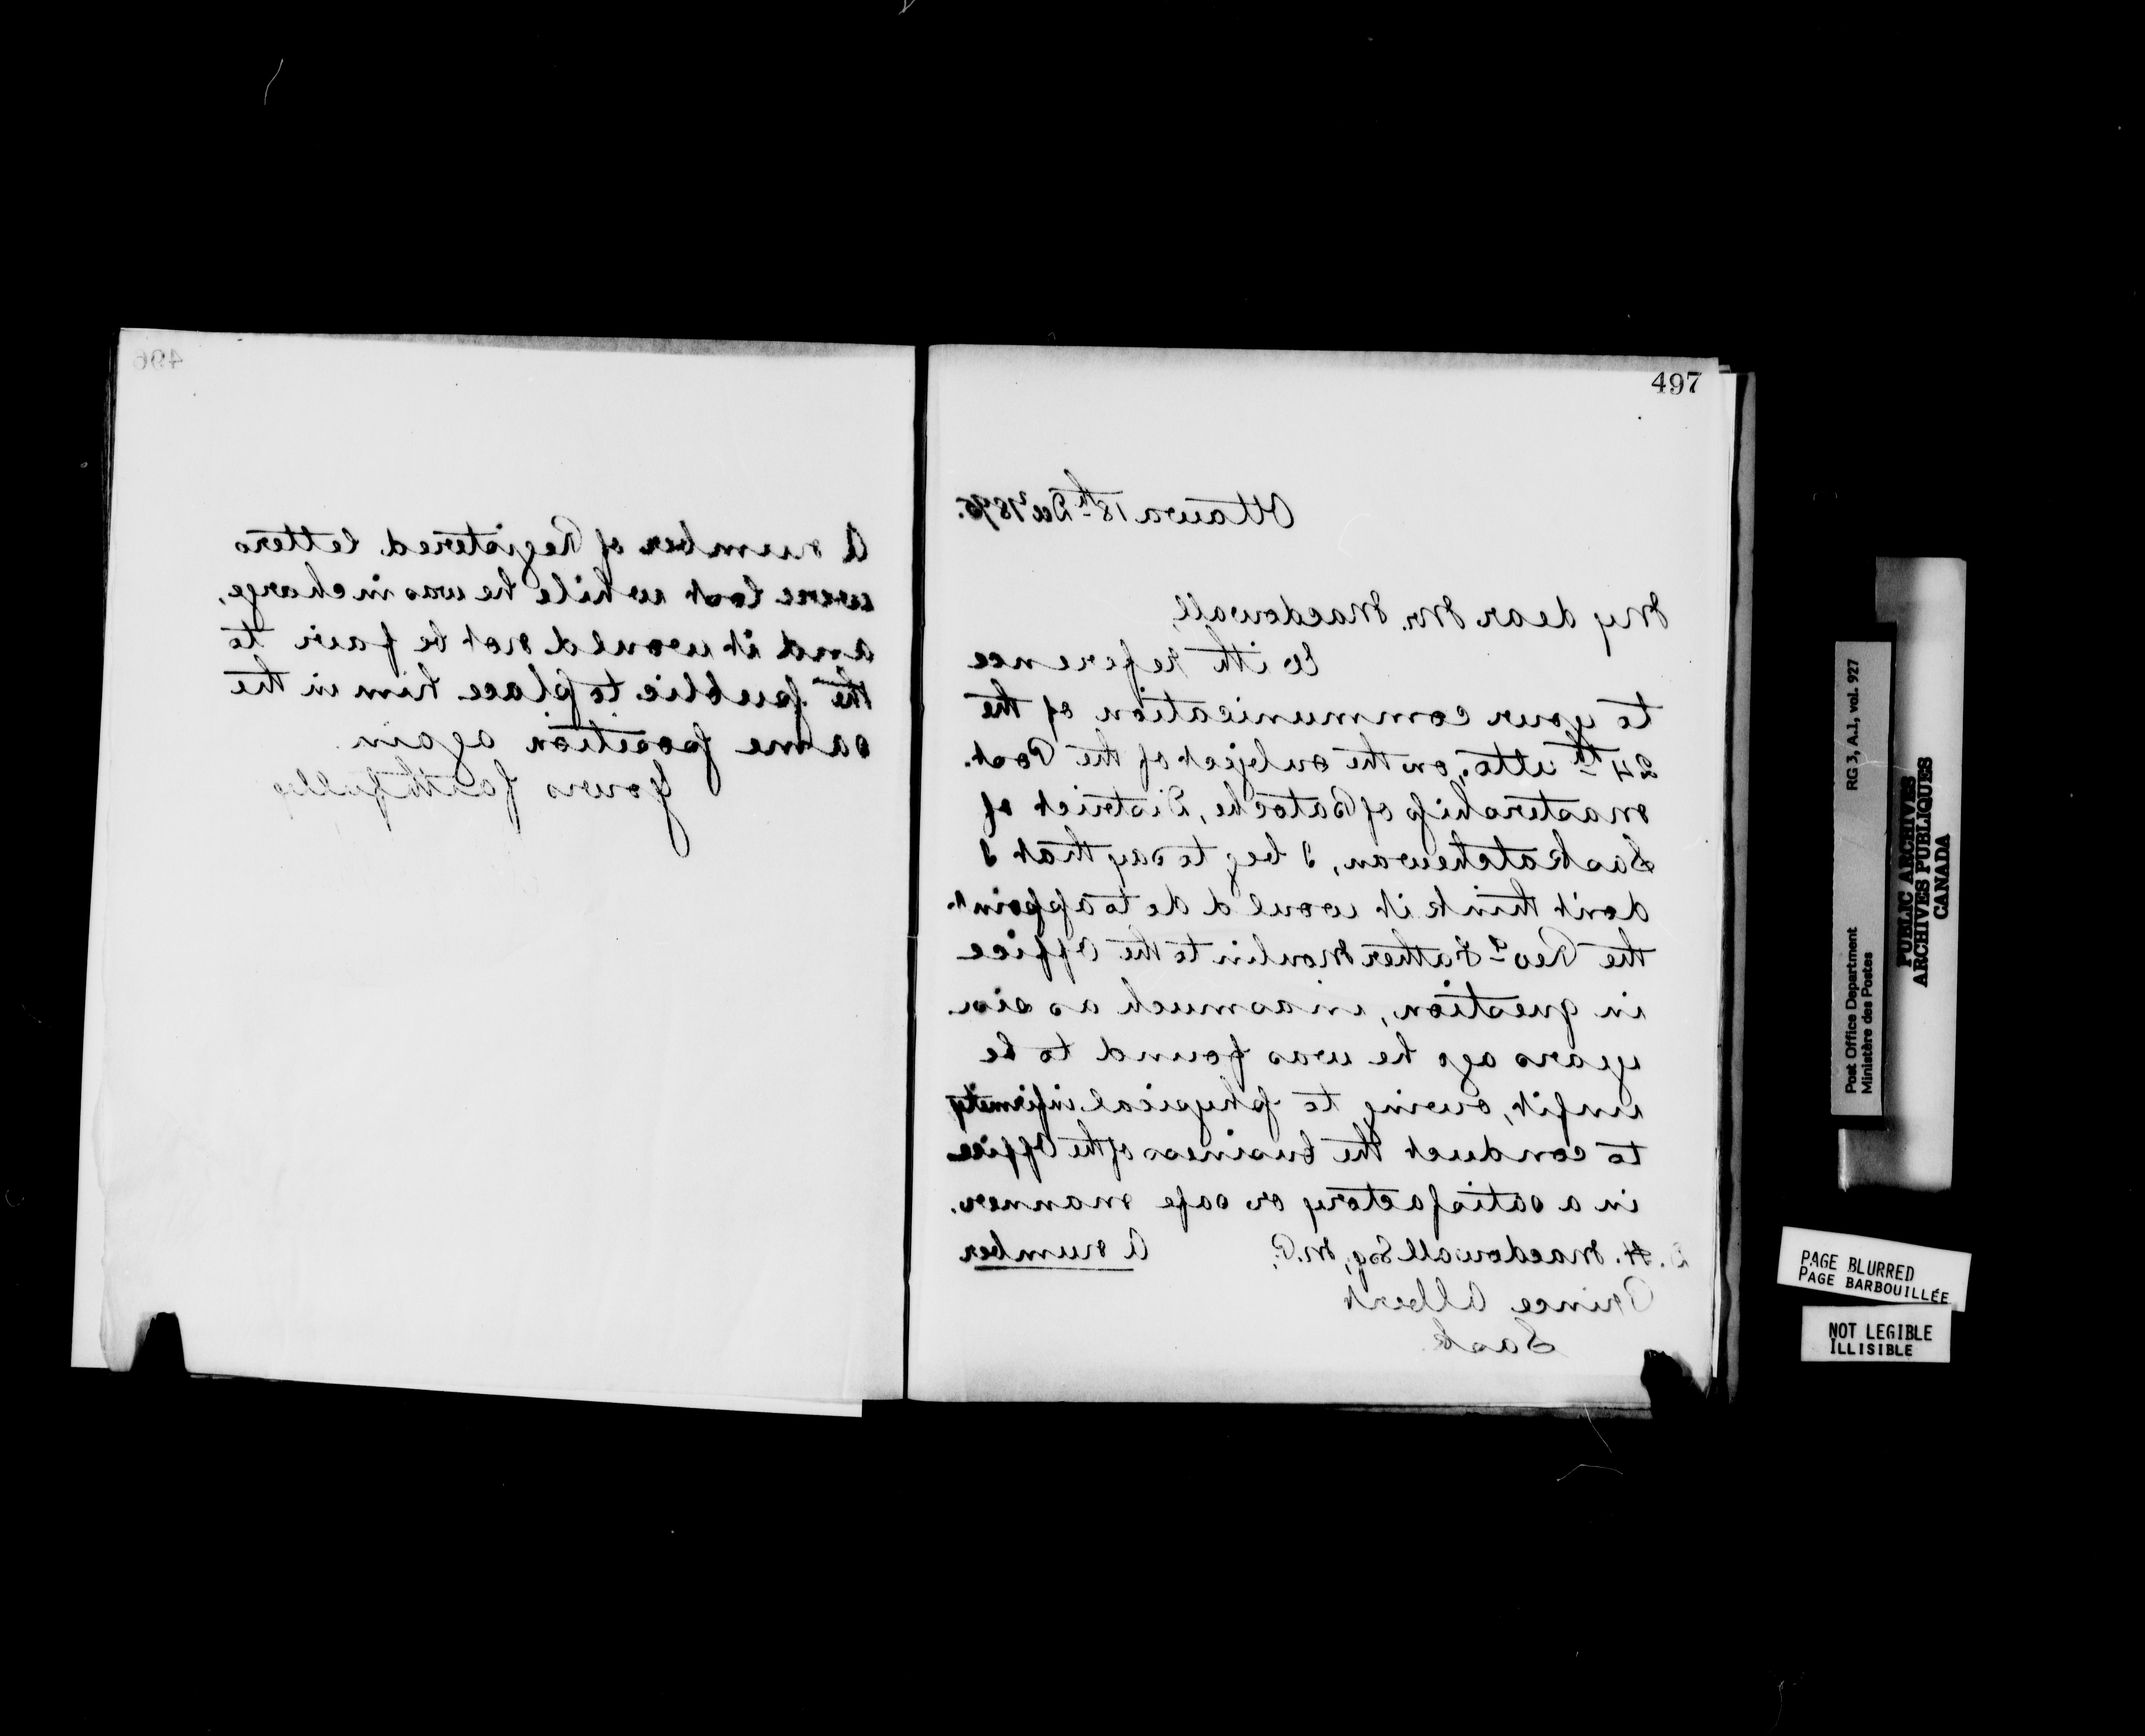 497
Ottawa 18th Decr 1895.
My dear Mr. Macdowall,
With reference
to your communication of the
24th ulto, on the subject of the Post.
mastership of Batoche, District of
Saskatchewan, I beg to say that I
don't think it would do to appoint
the Revd Father Moulin to the Office
in question, inasmuch as six
years ago he was found to be
unfit, owing to physical infirmity
to conduct the business of the Office
in a satisfactory or safe manner.
A number
D. H. Macdowall Esq, M.P.
Prince Albert
Sask
496
A number of Registered letters
were lost while he was in charge,
and it would not be fair to
the public to place him in the
same position again.
Yours faithfully
Post Office Department RG 3, A.1, vol. 927
Ministère des Postes
PUBLIC ARCHIVES
ARCHIVES PUBLIQUES
CANADA
PAGE BLURRED
PAGE BARBOUILLÉE
NOT LEGIBLE
ILLISIBLE